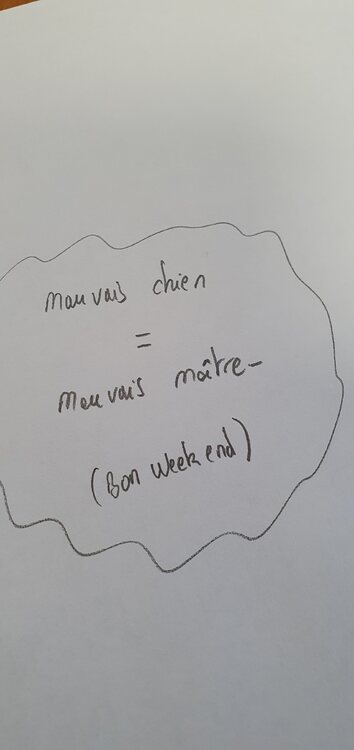 mauvais chien
=
mauvais maître-
(Bon week end)